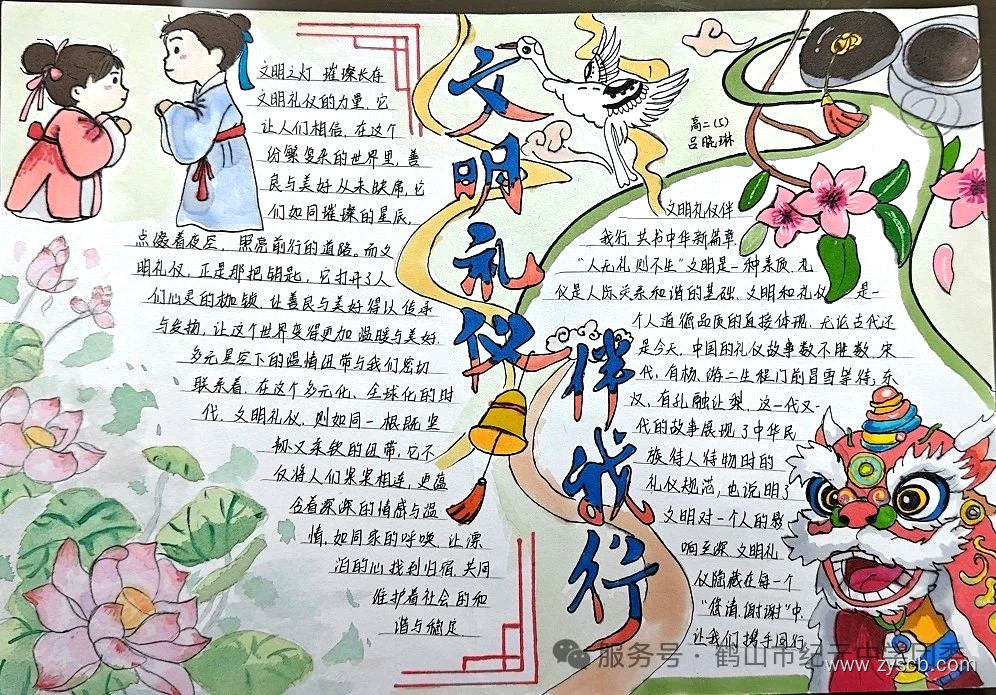 文明礼仪
伴我行
高二(5)
吕晓琳
文明之灯 璀璨长存
文明礼仪的力量,它
让人们相信,在这个
纷繁复杂的世界里,善
良与美好从未缺席,它
们如同璀璨的星辰,
点缀着夜空,照亮前行的道路。而文
明礼仪,正是那把钥匙,它打开了人
们心灵的枷锁,让善良与美好得以传承
与发扬,让这个世界变得更加温暖与美好.
多元星空下的温情纽带与我们密切
联系着,在这个多元化、全球化的时
代,文明礼仪,则如同一根既坚
韧又柔软的纽带,它不
仅将人们紧紧相连,更蕴
含着深深的情感与温
情,如同家的呼唤,让漂
泊的心找到归宿,共同
维护着社会的和
谐与稳定.
文明礼仪伴
我行,共书中华新篇章.
"人无礼则不生"文明是一种素质,礼
仪是人际关系和谐的基础,文明和礼仪是一
个人道德品质的直接体现,无论古代还
是今天,中国的礼仪故事数不胜数,宋
代,有杨、游二生程门前冒雪等待,东
汉,有孔融让梨,这一代又一
代的故事展现了中华民
族待人待物时的
礼仪规范,也说明了
文明对一个人的影
响至深,文明礼
仪隐藏在每一个
"您请,谢谢"中,
让我们携手同行.
服务号·鹤山市纪元中学团委
www.zyscb.com